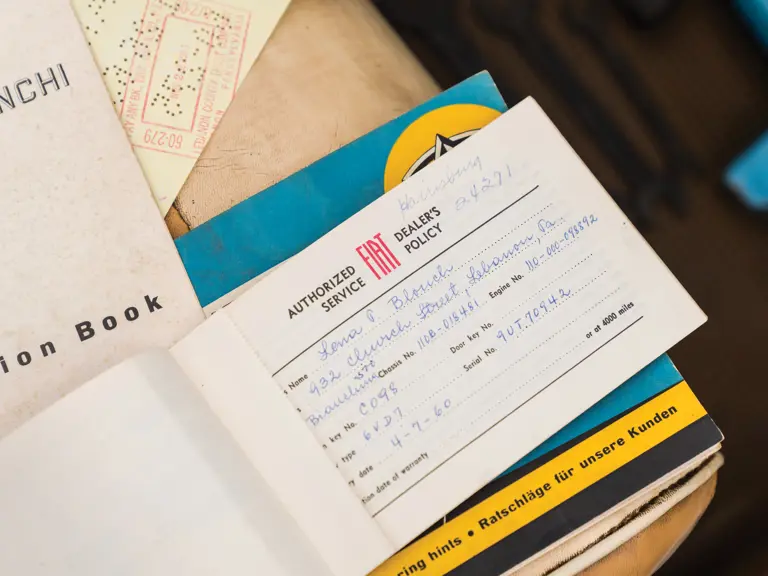 NCHI
ion Book
60-279
Harrisburg
a4271
AUTHORIZED SERVICE
FIAT
DEALER'S POLICY
Name Lena P. Blouch
932 Church Street, Lebanon, Pa.
Bianchina Chassis No. 110B-018481 Engine No. 110-000-098892
key No. C098 Door key No.
type 6VD7 Serial No. 9UT.70942
date 4-7-60
tion date of warranty or at 4000 miles
cing hints • Ratschläge für unsere Kunden